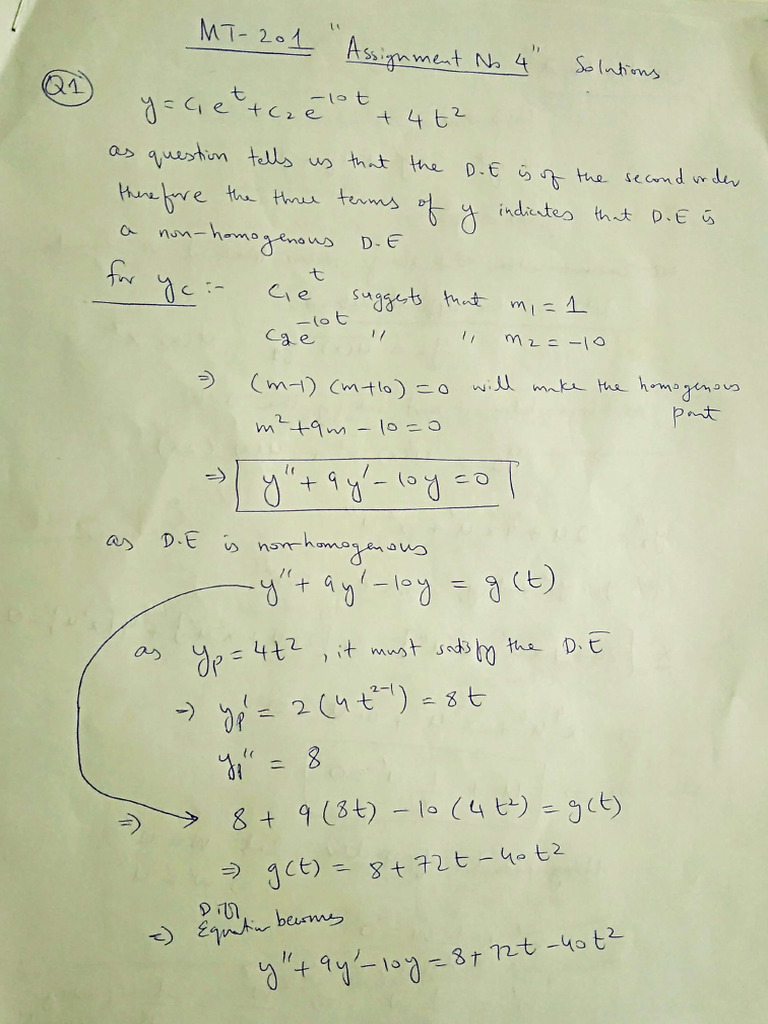 MT-201 "Assignment No 4" Solutions
Q1
y = c₁e^t + c₂e^-10t + 4t²
as question tells us that the D.E is of the second order
therefore the three terms of y indicates that D.E is
a non-homogenous D.E
for yc :- c₁e^t suggests that m₁ = 1
c₂e^-10t " " m₂ = -10
⇒ (m-1) (m+10) = 0 will make the homogenous
part
m² + 9m - 10 = 0
⇒ y'' + 9y' - 10y = 0
as D.E is non-homogenous
y'' + 9y' - 10y = g(t)
as yp = 4t² , it must satisfy the D.E
⇒ yp' = 2(4t^2-1) = 8t
yp'' = 8
⇒ 8 + 9(8t) - 10(4t²) = g(t)
⇒ g(t) = 8 + 72t - 40t²
Diff
⇒ Equation becomes
y'' + 9y' - 10y = 8 + 72t - 40t²